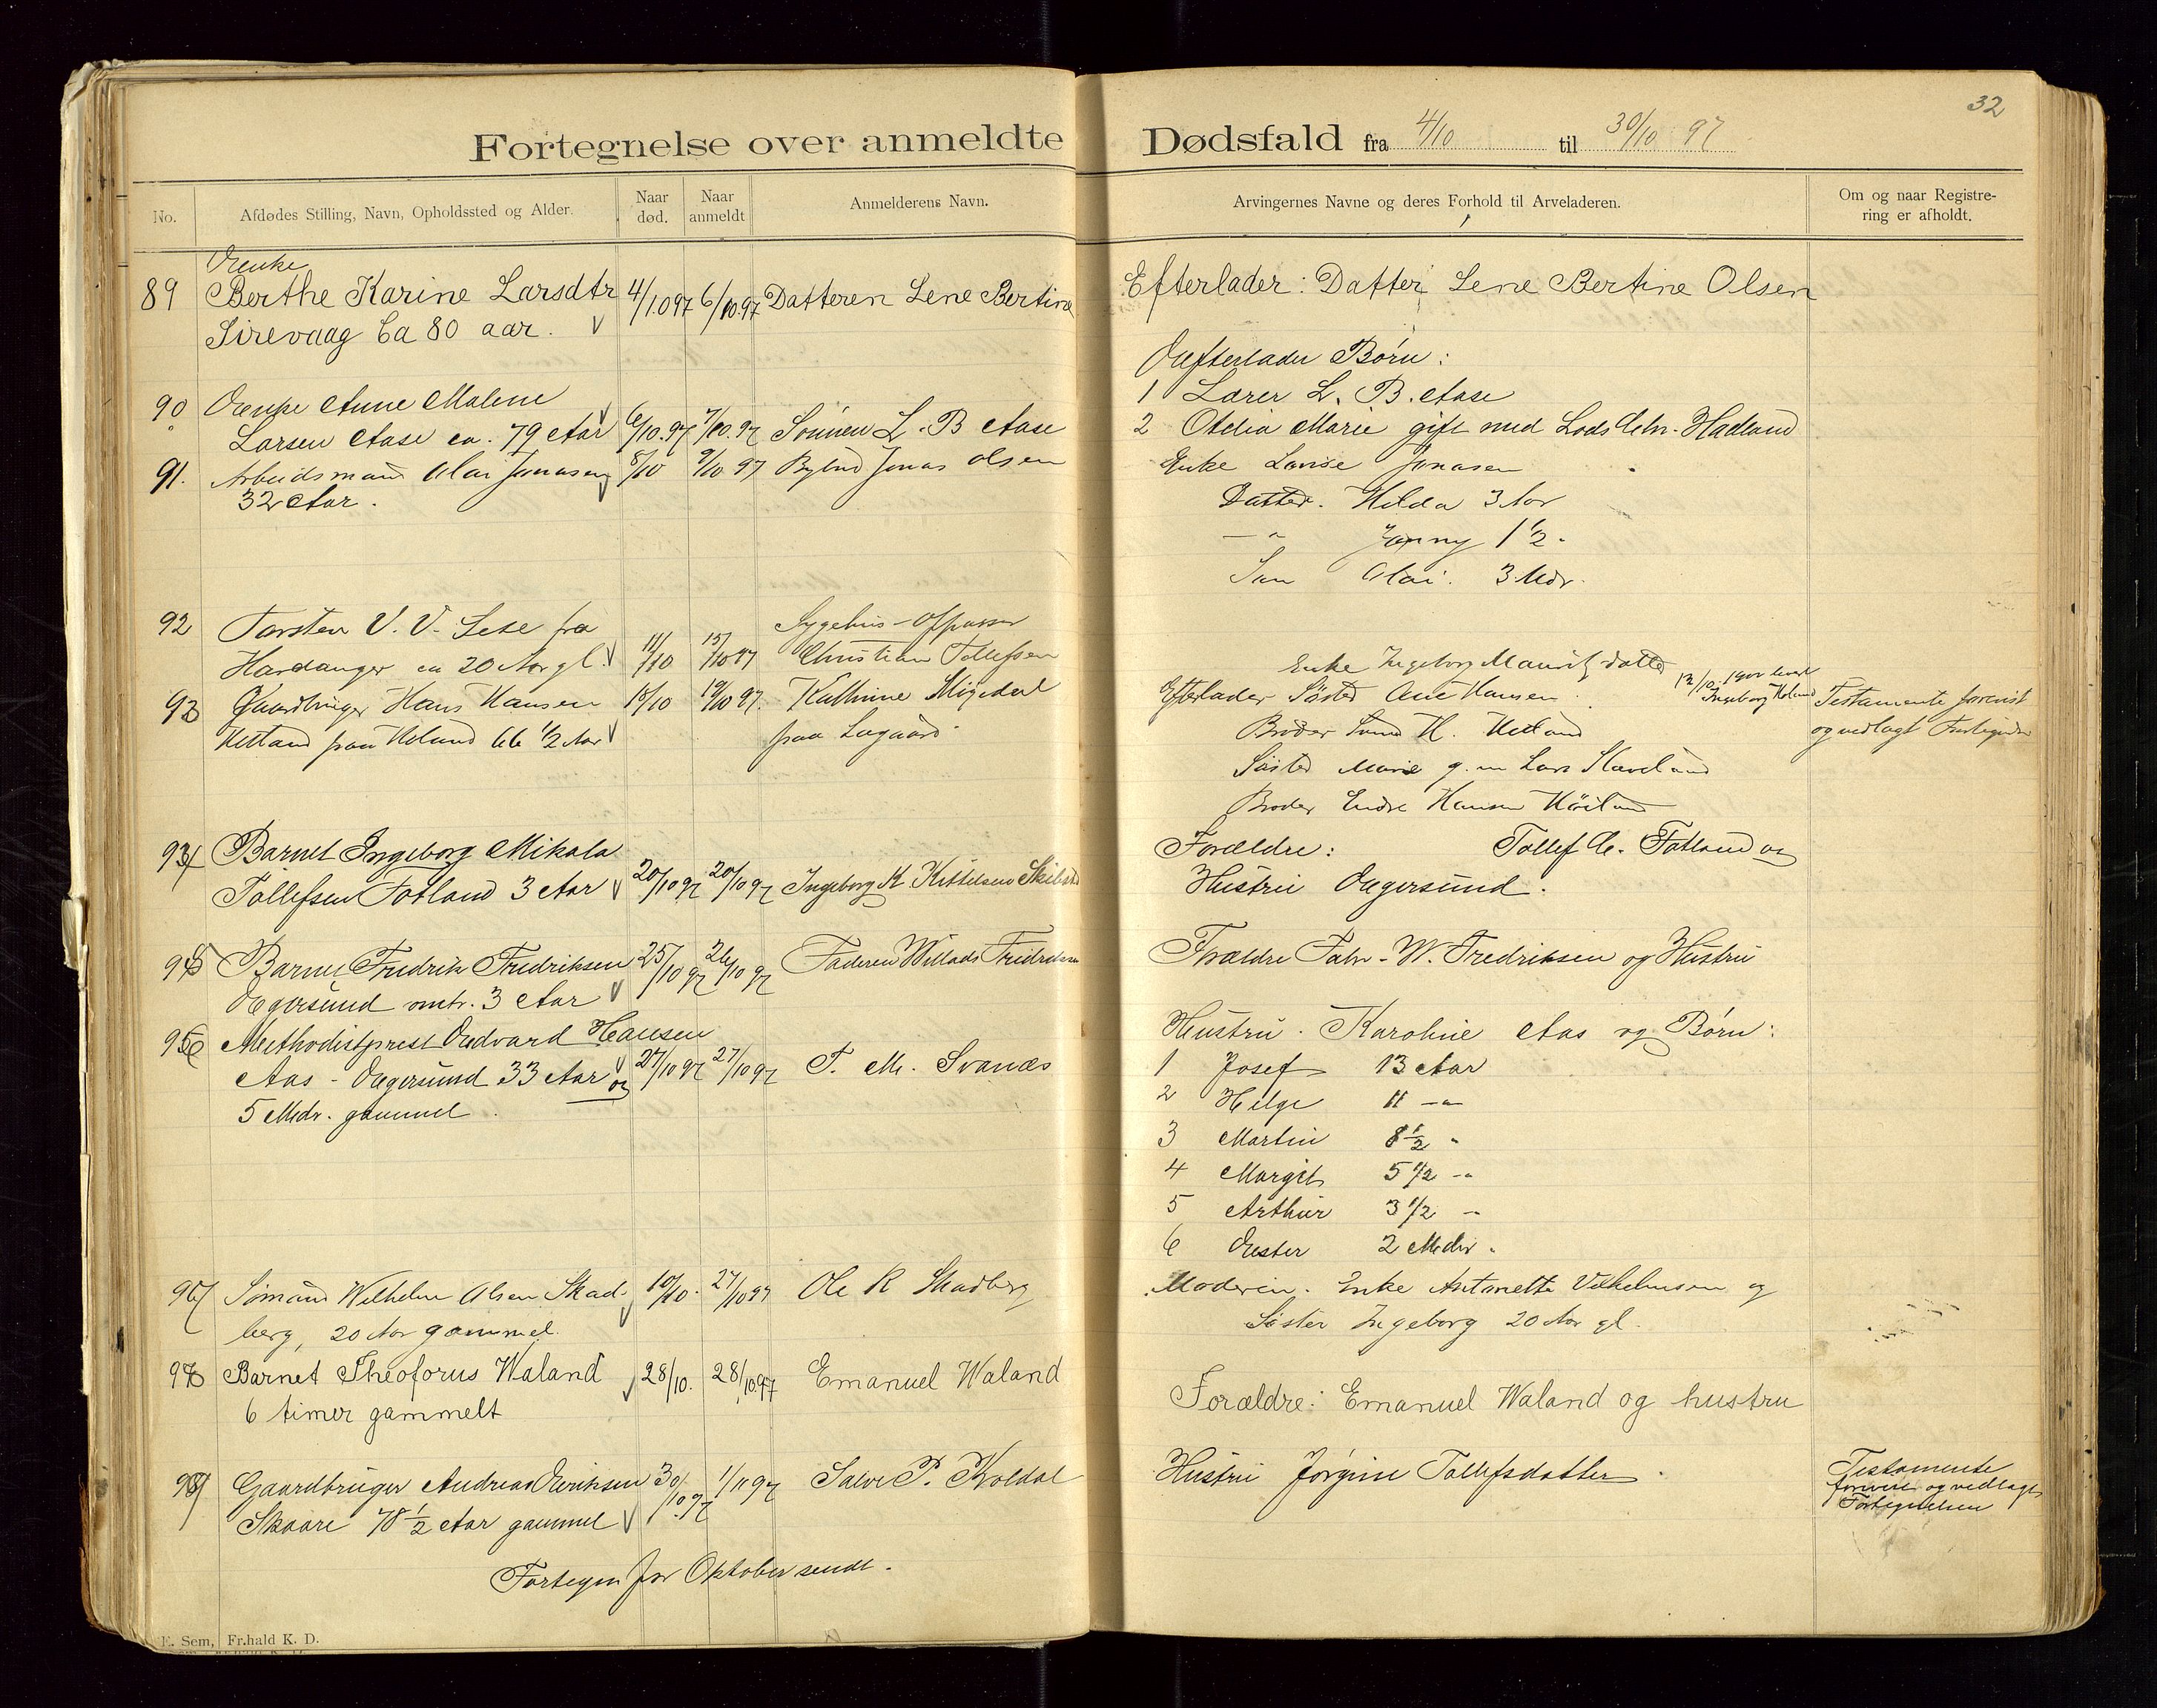 32
Fortegnelse over anmeldte Dødsfald fra 4/10 til 30/10 97
No.
Afdødes Stilling, Navn, Opholdssted og Alder.
Naar død.
Naar anmeldt
Anmelderens Navn.
Arvingernes Navne og deres Forhold til Arveladeren.
Om og naar Registre-
ring er afholdt.
Enke
89 Berthe Karine Larsdtr 4/10 97 6/10 97 Datteren Lene Bertine Efterlader: Datter Lene Bertine Olsen
Sirevaag Ca 80 aar.
Efterlader Børn:
90 Enke Anne Malene
1 Lærer L. B. Aase
Larsen Aase ca. 79 Aar 6/10.97 7/10.97 Sønnen L. B Aase
2 Otelia Marie gift med Lods Chr. Hadland
91. Arbeidsmand Olai Jonasen 8/10 9/10 97 Jonas Olsen
32 Aar.
Enke Lovise Jonasen
Datter. Hilda 3 Aar
— " Jonny 1 1/2 "
Søn Olai. 3 Mdr.
92 Torsten V. V. Sexe fra
Hardanger ca 20 Aar gl. 11/10 15/10 97
Sygehus-Opasser
Christian Tollefsen
Enke Ingeborg Mauritzdatter
93 Gaardbruger Hans Hansen 18/10 19/10 97. Kathrine Migedal
Hetland paa Holund 66 1/2 Aar
paa Lagaard
Efterlader Søster Ane Hansen
Broder H. Hetland
Søster Marie g. m Lars Skaveland
Broder Endre Hansen
Testamente forevist
og vedlagt
94 Barnet Ingeborg Mikala
Tollefsen Fotland 3 Aar 20/10 97 20/10 97 Ingeborg K Kittelsen
Forældre: Tollef C. Fotland og
Hustru Egersund.
95 Barnet Fredrik Fredriksen 25/10 97 26/10 97 Faderen Willads Fredriksen
Egersund omtr. 3 Aar
Forældre Fabr. W. Fredriksen og Hustru
96 Methodistprest Edvard Hansen
Aas - Egersund 33 Aar og 27/10 97 27/10 97 T. M. Svanæs
5 Mdr. gammel
Hustru. Karoline Aas og Børn:
1 Josef 13 Aar
2 Helge 11 — "
3 Martin 8 1/2 "
4 Margit 5 1/2 — "
5 Arthur 3 1/2 — "
6 Ester 2 Mdr.
97 Sømand Wilhelm Olsen Skad- 10/10. 27/10 97 Ole R Skadberg
berg, 20 Aar gammel.
Moderen. Enke Antonette Vilhelmsen og
Søster Ingeborg 20 Aar gl.
98 Barnet Theoforus Waland 28/10. 28/10.97 Emanuel Waland
6 timer gammelt
Forældre: Emanuel Waland og hustru
99 Gaardbruger Andreas Eriksen 30/10.97 1/11 97 Salve P. Koldal
Skaare 78 1/2 Aar gammel
Hustru Jørgine Tollefsdatter.
Testamente
forevist og vedlagt
Fortegnelsen
Fortegn for Oktober sendt.
E. Sem, Fr.hald K. D.